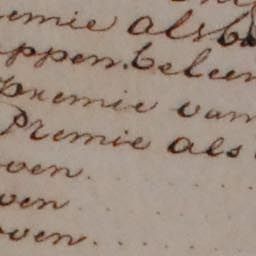 emie alsb
ppen. beleen
premie van
Premie als
oven
ven
oven